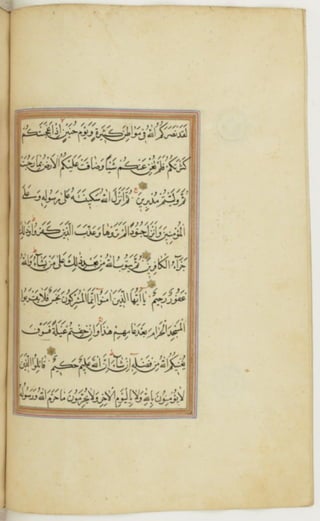 لَقَدْ نَصَرَكُمُ اللَّهُ فِي مَوَاطِنَ كَثِيرَةٍ وَيَوْمَ حُنَيْنٍ إِذْ أَعْجَبَتْكُمْ
كَثْرَتُكُمْ فَلَمْ تُغْنِ عَنْكُمْ شَيْئًا وَضَاقَتْ عَلَيْكُمُ الْأَرْضُ بِمَا رَحُبَتْ
ثُمَّ وَلَّيْتُمْ مُدْبِرِينَ ثُمَّ أَنْزَلَ اللَّهُ سَكِينَتَهُ عَلَى رَسُولِهِ وَعَلَى
الْمُؤْمِنِينَ وَأَنْزَلَ جُنُودًا لَمْ تَرَوْهَا وَعَذَّبَ الَّذِينَ كَفَرُوا وَذَلِكَ
جَزَاءُ الْكَافِرِينَ ثُمَّ يَتُوبُ اللَّهُ مِنْ بَعْدِ ذَلِكَ عَلَى مَنْ يَشَاءُ وَاللَّهُ
غَفُورٌ رَحِيمٌ يَا أَيُّهَا الَّذِينَ آمَنُوا إِنَّمَا الْمُشْرِكُونَ نَجَسٌ فَلَا يَقْرَبُوا
الْمَسْجِدَ الْحَرَامَ بَعْدَ عَامِهِمْ هَذَا وَإِنْ خِفْتُمْ عَيْلَةً فَسَوْفَ
يُغْنِيكُمُ اللَّهُ مِنْ فَضْلِهِ إِنْ شَاءَ إِنَّ اللَّهَ عَلِيمٌ حَكِيمٌ قَاتِلُوا الَّذِينَ
لَا يُؤْمِنُونَ بِاللَّهِ وَلَا بِالْيَوْمِ الْآخِرِ وَلَا يُحَرِّمُونَ مَا حَرَّمَ اللَّهُ وَرَسُولُهُ